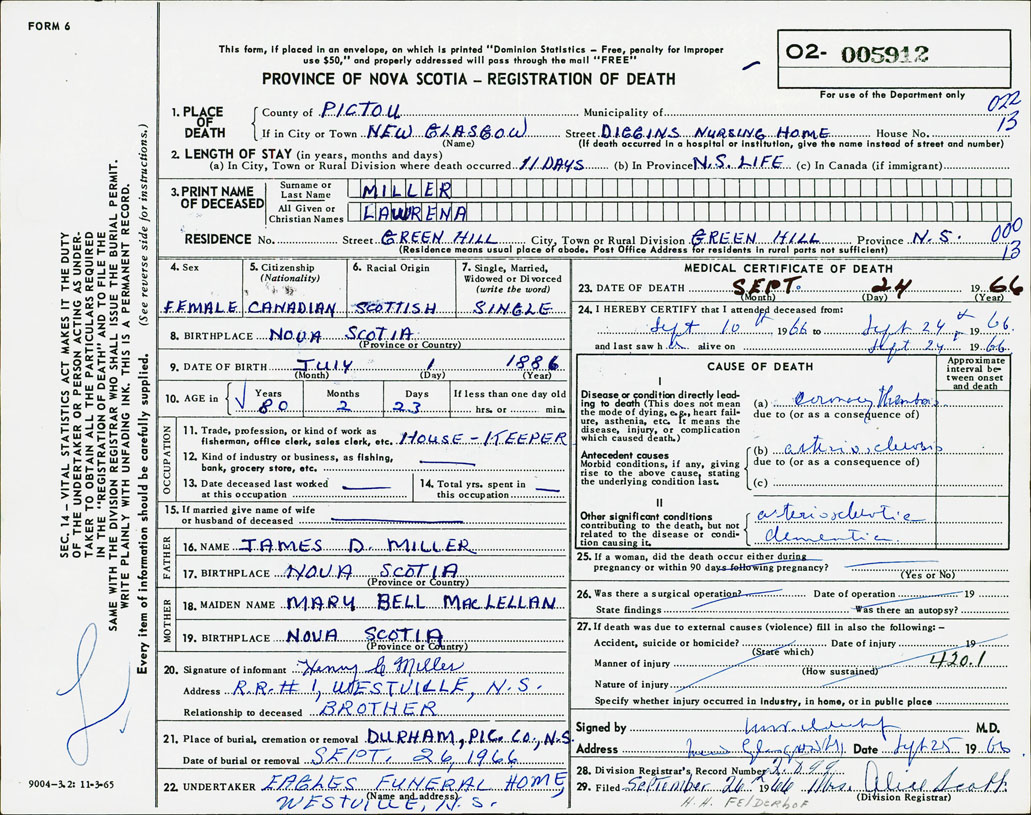 FORM 6
This form, if placed in an envelope, on which is printed "Dominion Statistics – Free, penalty for improper
use $50," and properly addressed will pass through the mail "FREE"
PROVINCE OF NOVA SCOTIA – REGISTRATION OF DEATH
O2- 005912
For use of the Department only
022
13
1. PLACE OF DEATH
County of PICTOU Municipality of
If in City or Town NEW GLASGOW Street DIGGINS NURSING HOME House No.
(Name) (If death occurred in a hospital or institution, give the name instead of street and number)
2. LENGTH OF STAY (in years, months and days)
(a) In City, Town or Rural Division where death occurred 11 DAYS (b) In Province N.S. LIFE (c) In Canada (if immigrant)
3. PRINT NAME OF DECEASED
Surname or Last Name MILLER
All Given or Christian Names LAWRENA
RESIDENCE No. Street GREEN HILL City, Town or Rural Division GREEN HILL Province N.S.
(Residence means usual place of abode. Post Office Address for residents in rural parts not sufficient)
000
13
4. Sex
FEMALE
5. Citizenship
(Nationality)
CANADIAN
6. Racial Origin
SCOTTISH
7. Single, Married,
Widowed or Divorced
(write the word)
SINGLE
8. BIRTHPLACE NOVA SCOTIA
(Province or Country)
9. DATE OF BIRTH JULY 1 1886
(Month) (Day) (Year)
10. AGE in Years Months Days If less than one day old
80 2 23 hrs. or min.
OCCUPATION
11. Trade, profession, or kind of work as
fisherman, office clerk, sales clerk, etc. HOUSE-KEEPER
12. Kind of industry or business, as fishing,
bank, grocery store, etc.
13. Date deceased last worked
at this occupation
14. Total yrs. spent in
this occupation
15. If married give name of wife
or husband of deceased
FATHER
16. NAME JAMES D. MILLER
17. BIRTHPLACE NOVA SCOTIA
(Province or Country)
MOTHER
18. MAIDEN NAME MARY BELL MACLELLAN
19. BIRTHPLACE NOVA SCOTIA
(Province or Country)
20. Signature of informant Henry C Miller
Address R.R.# 1, WESTVILLE, N.S.
Relationship to deceased BROTHER
21. Place of burial, cremation or removal DURHAM, PIC. CO., N.S.
Date of burial or removal SEPT. 26, 1966
22. UNDERTAKER EAGLES FUNERAL HOME,
(Name and address)
WESTVILLE, N.S.
MEDICAL CERTIFICATE OF DEATH
23. DATE OF DEATH SEPT. 24 1966
(Month) (Day) (Year)
24. I HEREBY CERTIFY that I attended deceased from:
Sept 10th 1966 to Sept 24th 1966
and last saw h alive on Sept 24th 1966
CAUSE OF DEATH
Approximate
interval be-
tween onset
and death
I
Disease or condition directly lead-
ing to death (This does not mean
the mode of dying, e.g., heart fail-
ure, asthenia, etc. It means the
disease, injury, or complication
which caused death.)
(a)
due to (or as a consequence of)
Antecedent causes
Morbid conditions, if any, giving
rise to the above cause, stating
the underlying condition last.
(b) arteriosclerosis
due to (or as a consequence of)
(c)
II
Other significant conditions
contributing to the death, but not
related to the disease or condi-
tion causing it.
arteriosclerotic
dementia.
25. If a woman, did the death occur either during
pregnancy or within 90 days following pregnancy?
(Yes or No)
26. Was there a surgical operation? Date of operation 19
State findings Was there an autopsy?
27. If death was due to external causes (violence) fill in also the following: –
Accident, suicide or homicide? Date of injury 19
(State which)
Manner of injury 420.1
(How sustained)
Nature of injury
Specify whether injury occurred in Industry, in home, or in public place
Signed by M.D.
Address Date Sept 25 1966
28. Division Registrar's Record Number 2899
29. Filed September 26 1966 Mrs. Alice Scott
(Division Registrar)
H.H. Felderhof
SEC. 14 – VITAL STATISTICS ACT MAKES IT THE DUTY
OF THE UNDERTAKER OR PERSON ACTING AS UNDER-
TAKER TO OBTAIN ALL THE PARTICULARS REQUIRED
IN THE "REGISTRATION OF DEATH" AND TO FILE THE
SAME WITH THE DIVISION REGISTRAR WHO SHALL ISSUE THE BURIAL PERMIT.
WRITE PLAINLY WITH UNFADING INK. THIS IS A PERMANENT RECORD.
Every item of information should be carefully supplied. (See reverse side for instructions.)
9004-3.2: 11-3-65